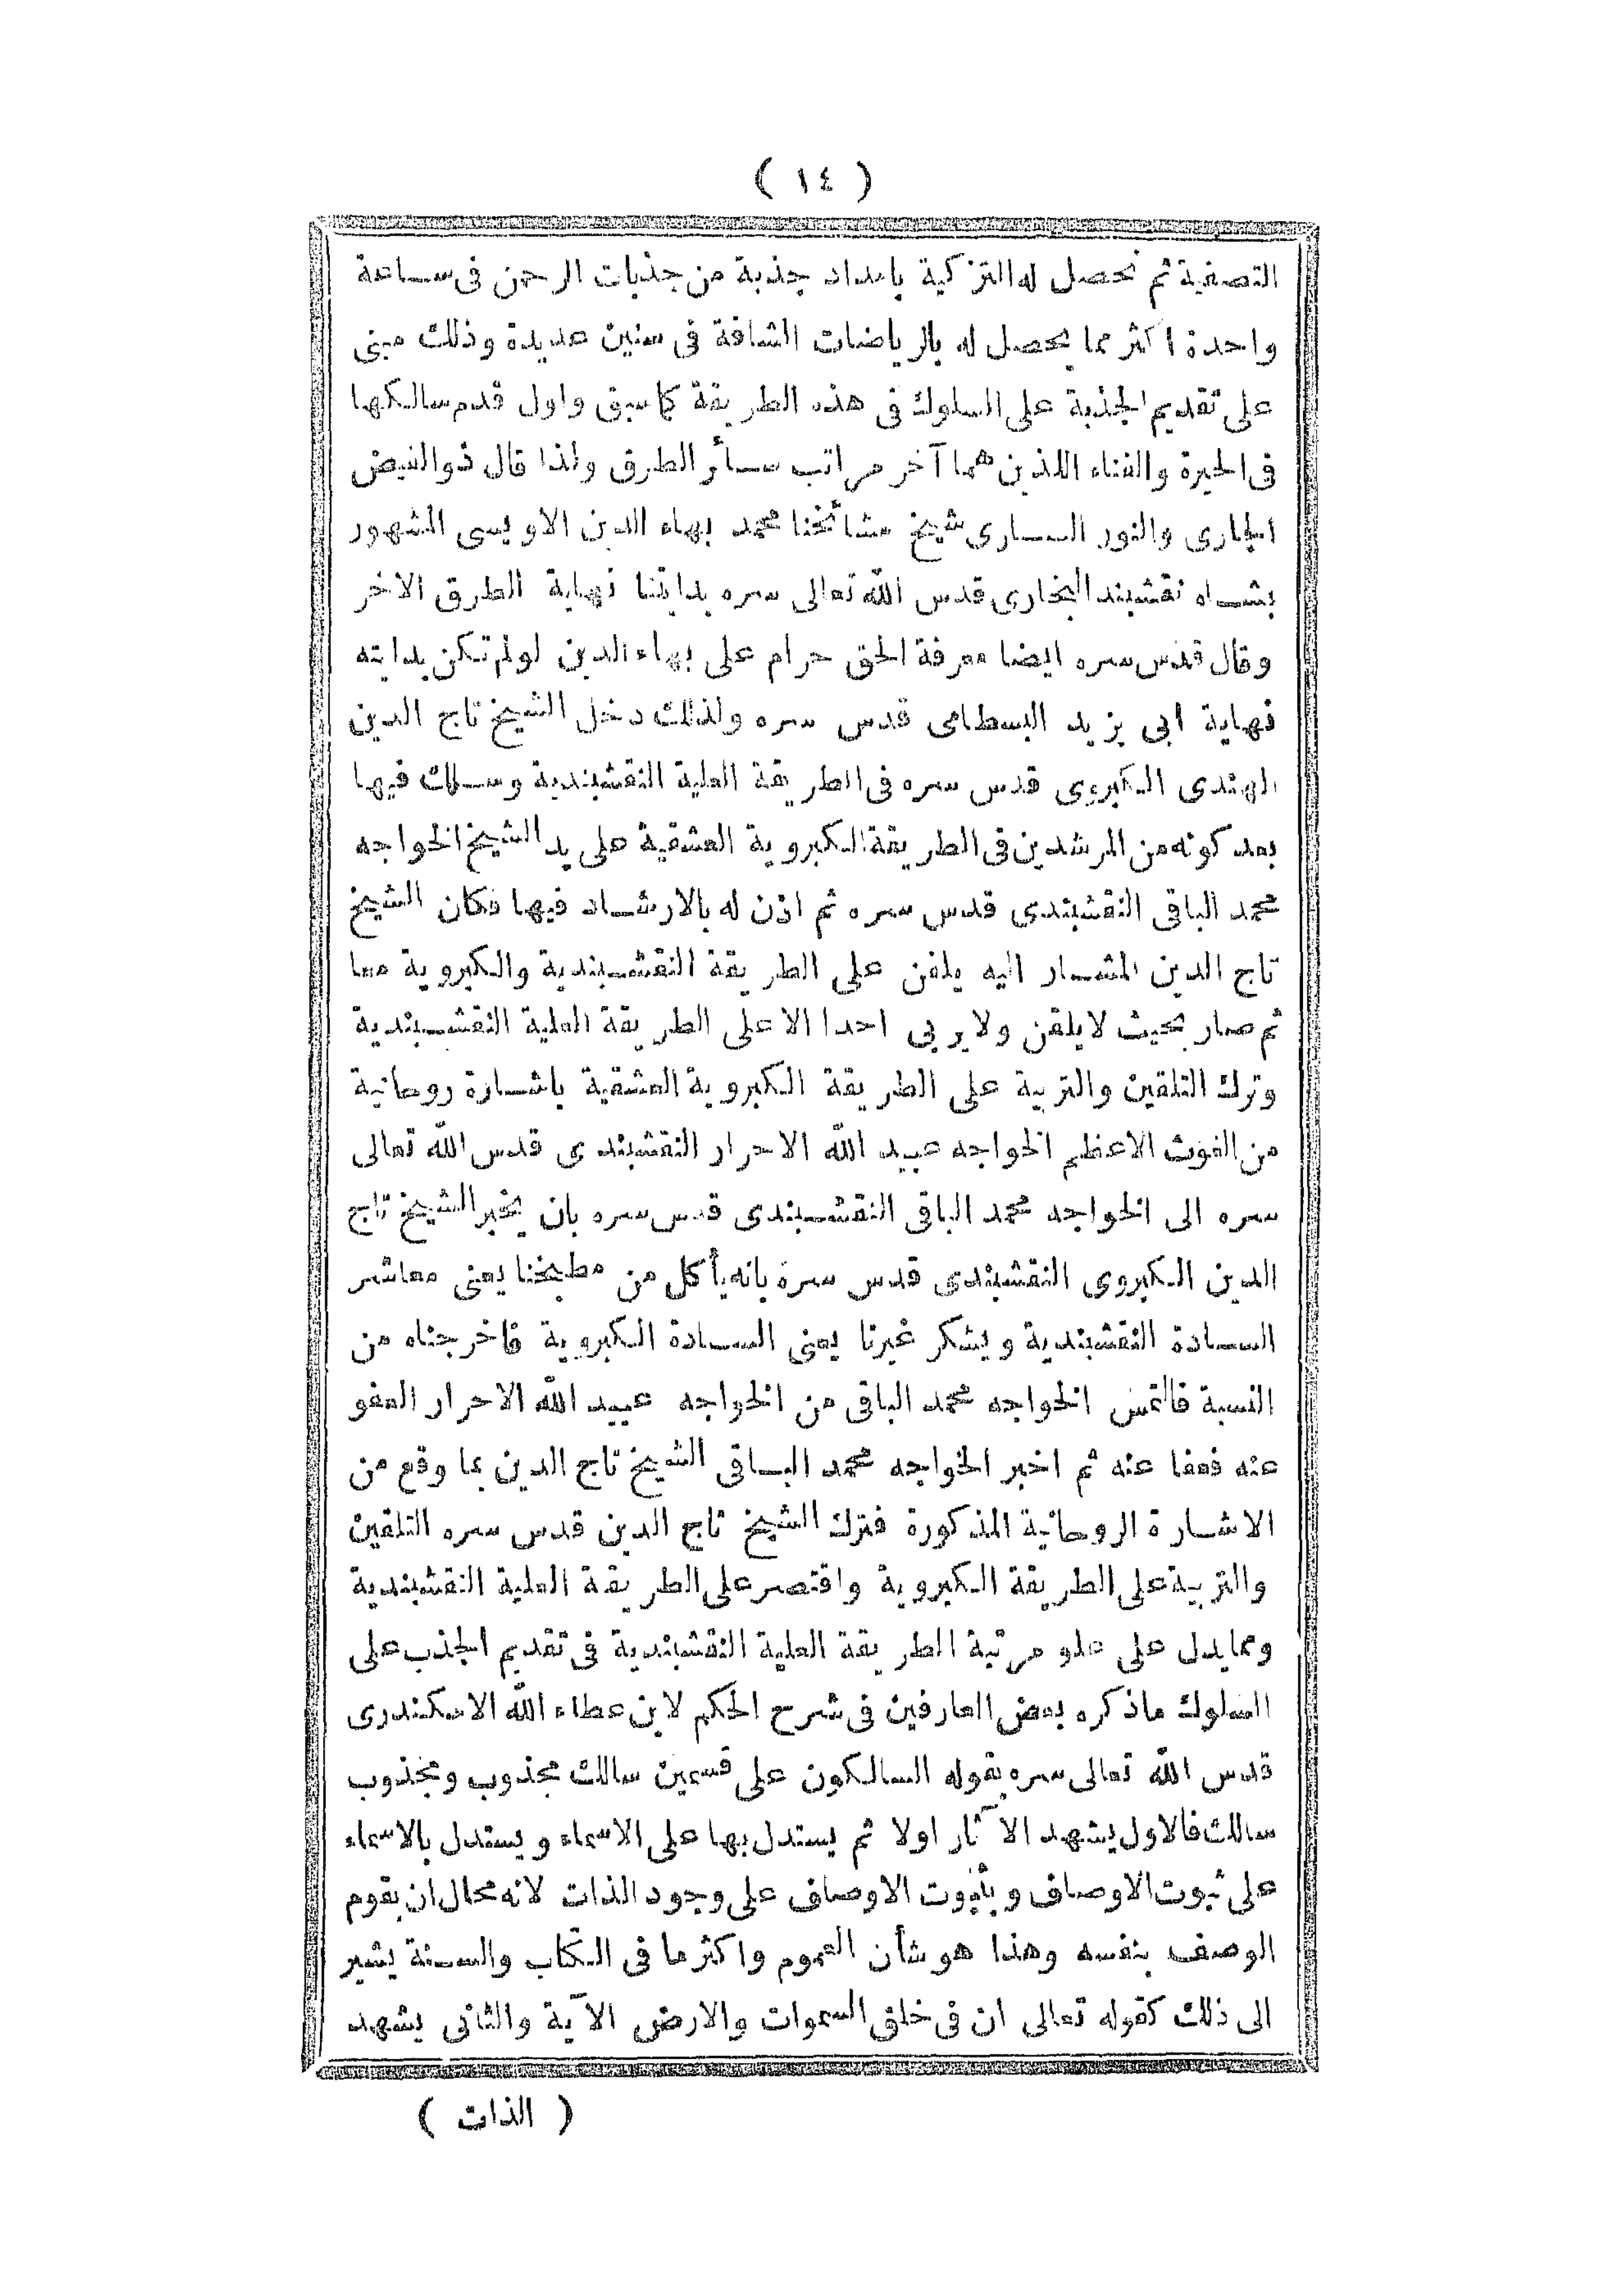 ( ١٤ )
التصفية ثم تحصل له التزكية بامداد جذبة من جذبات الرحمن فى ساعة
واحدة اكثر مما يحصل له بالرياضات الشاقة فى سنين عديدة وذلك مبنى
على تقديم الجذبة على السلوك فى هذه الطريقة كما سبق واول قدم سالكها
فى الحيرة والفناء اللذين هما آخر مراتب سائر الطرق ولذا قال ذو الفيض
الجارى والنور السارى شيخ مشائخنا محمد بهاء الدين الاويسى المشهور
بشاه نقشبند البخارى قدس الله تعالى سره بدايتنا نهاية الطرق الاخر
وقال قدس سره ايضا معرفة الحق حرام على بهاء الدين لو لم تكن بدايته
نهاية ابى يزيد البسطامى قدس سره ولذلك دخل الشيخ تاج الدين
الهندى الكبروى قدس سره فى الطريقة العلية النقشبندية وسلك فيها
بعد كونه من المرشدين فى الطريقة الكبروية العشقية على يد الشيخ الخواجه
محمد الباقى النقشبندى قدس سره ثم اذن له بالارشاد فيها فكان الشيخ
تاج الدين المشار اليه يلقن على الطريقة النقشبندية والكبروية معا
ثم صار بحيث لايلقن ولايربى احدا الا على الطريقة العلية النقشبندية
وترك التلقين والتربية على الطريقة الكبروية العشقية باشارة روحانية
من الغوث الاعظم الخواجه عبيد الله الاحرار النقشبندى قدس الله تعالى
سره الى الخواجه محمد الباقى النقشبندى قدس سره بان يخبر الشيخ تاج
الدين الكبروى النقشبندى قدس سره بانه يأكل من مطبخنا يعنى معاشر
السادة النقشبندية ويشكر غيرنا يعنى السادة الكبروية فاخرجناه من
النسبة فالتمس الخواجه محمد الباقى من الخواجه عبيد الله الاحرار العفو
عنه فعفا عنه ثم اخبر الخواجه محمد الباقى الشيخ تاج الدين بما وقع من
الاشارة الروحانية المذكورة فترك الشيخ تاج الدين قدس سره التلقين
والتربية على الطريقة الكبروية واقتصر على الطريقة العلية النقشبندية
ومما يدل على علو مرتبة الطريقة العلية النقشبندية فى تقديم الجذب على
السلوك ماذكره بعض العارفين فى شرح الحكم لابن عطاء الله الاسكندرى
قدس الله تعالى سره بقوله السالكون على قسمين سالك مجذوب ومجذوب
سالك فالاول يشهد الآثار اولا ثم يستدل بها على الاسماء ويستدل بالاسماء
على ثبوت الاوصاف وبثبوت الاوصاف على وجود الذات لانه محال ان يقوم
الوصف بنفسه وهذا هو شأن العموم واكثر ما فى الكتاب والسنة يشير
الى ذلك كقوله تعالى ان فى خلق السموات والارض الآية والثانى يشهد
( الذات )